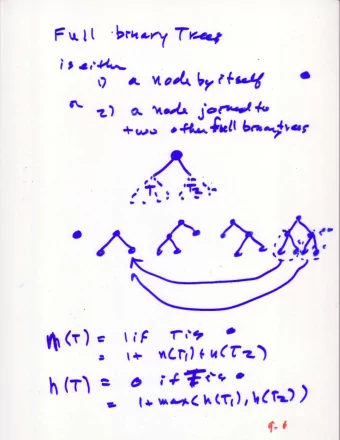 Full binary Trees
is either
1) a node by itself
or 2) a node joined to
two other full binary trees
T1 T2
n(T) = 1 if T is •
= 1 + n(T1) + n(T2)
h(T) = 0 if T is •
= 1 + max(h(T1), h(T2))
9-6